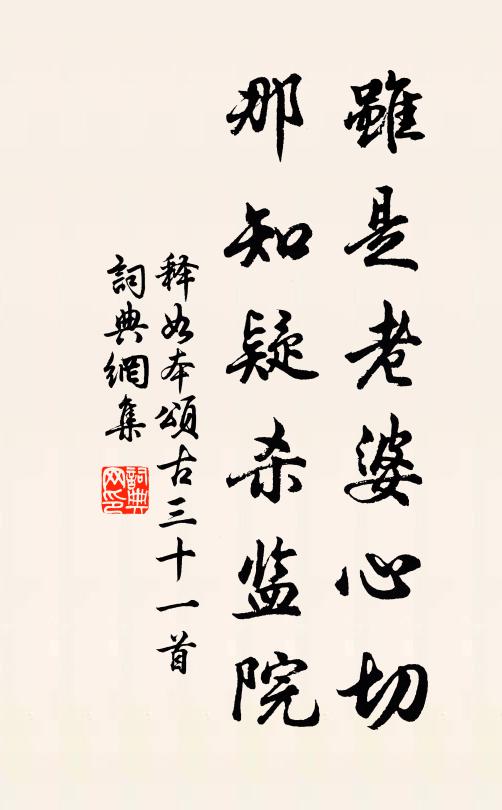 雖是老婆心切
那知疑杀监院
释如本頌古三十一首
詞典網集
詞典网印